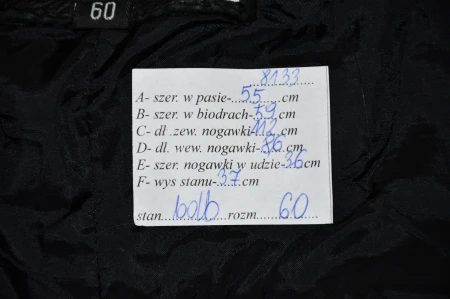 60
8133
A- szer. w pasie-...55...cm
B- szer. w biodrach-59.cm
C- dł .zew. nogawki-112.cm
D- dł. wew. nogawki-86.cm
E- szer. nogawki w udzie-36cm
F- wys stanu-37.cm
stan...bdb...rozm......60......